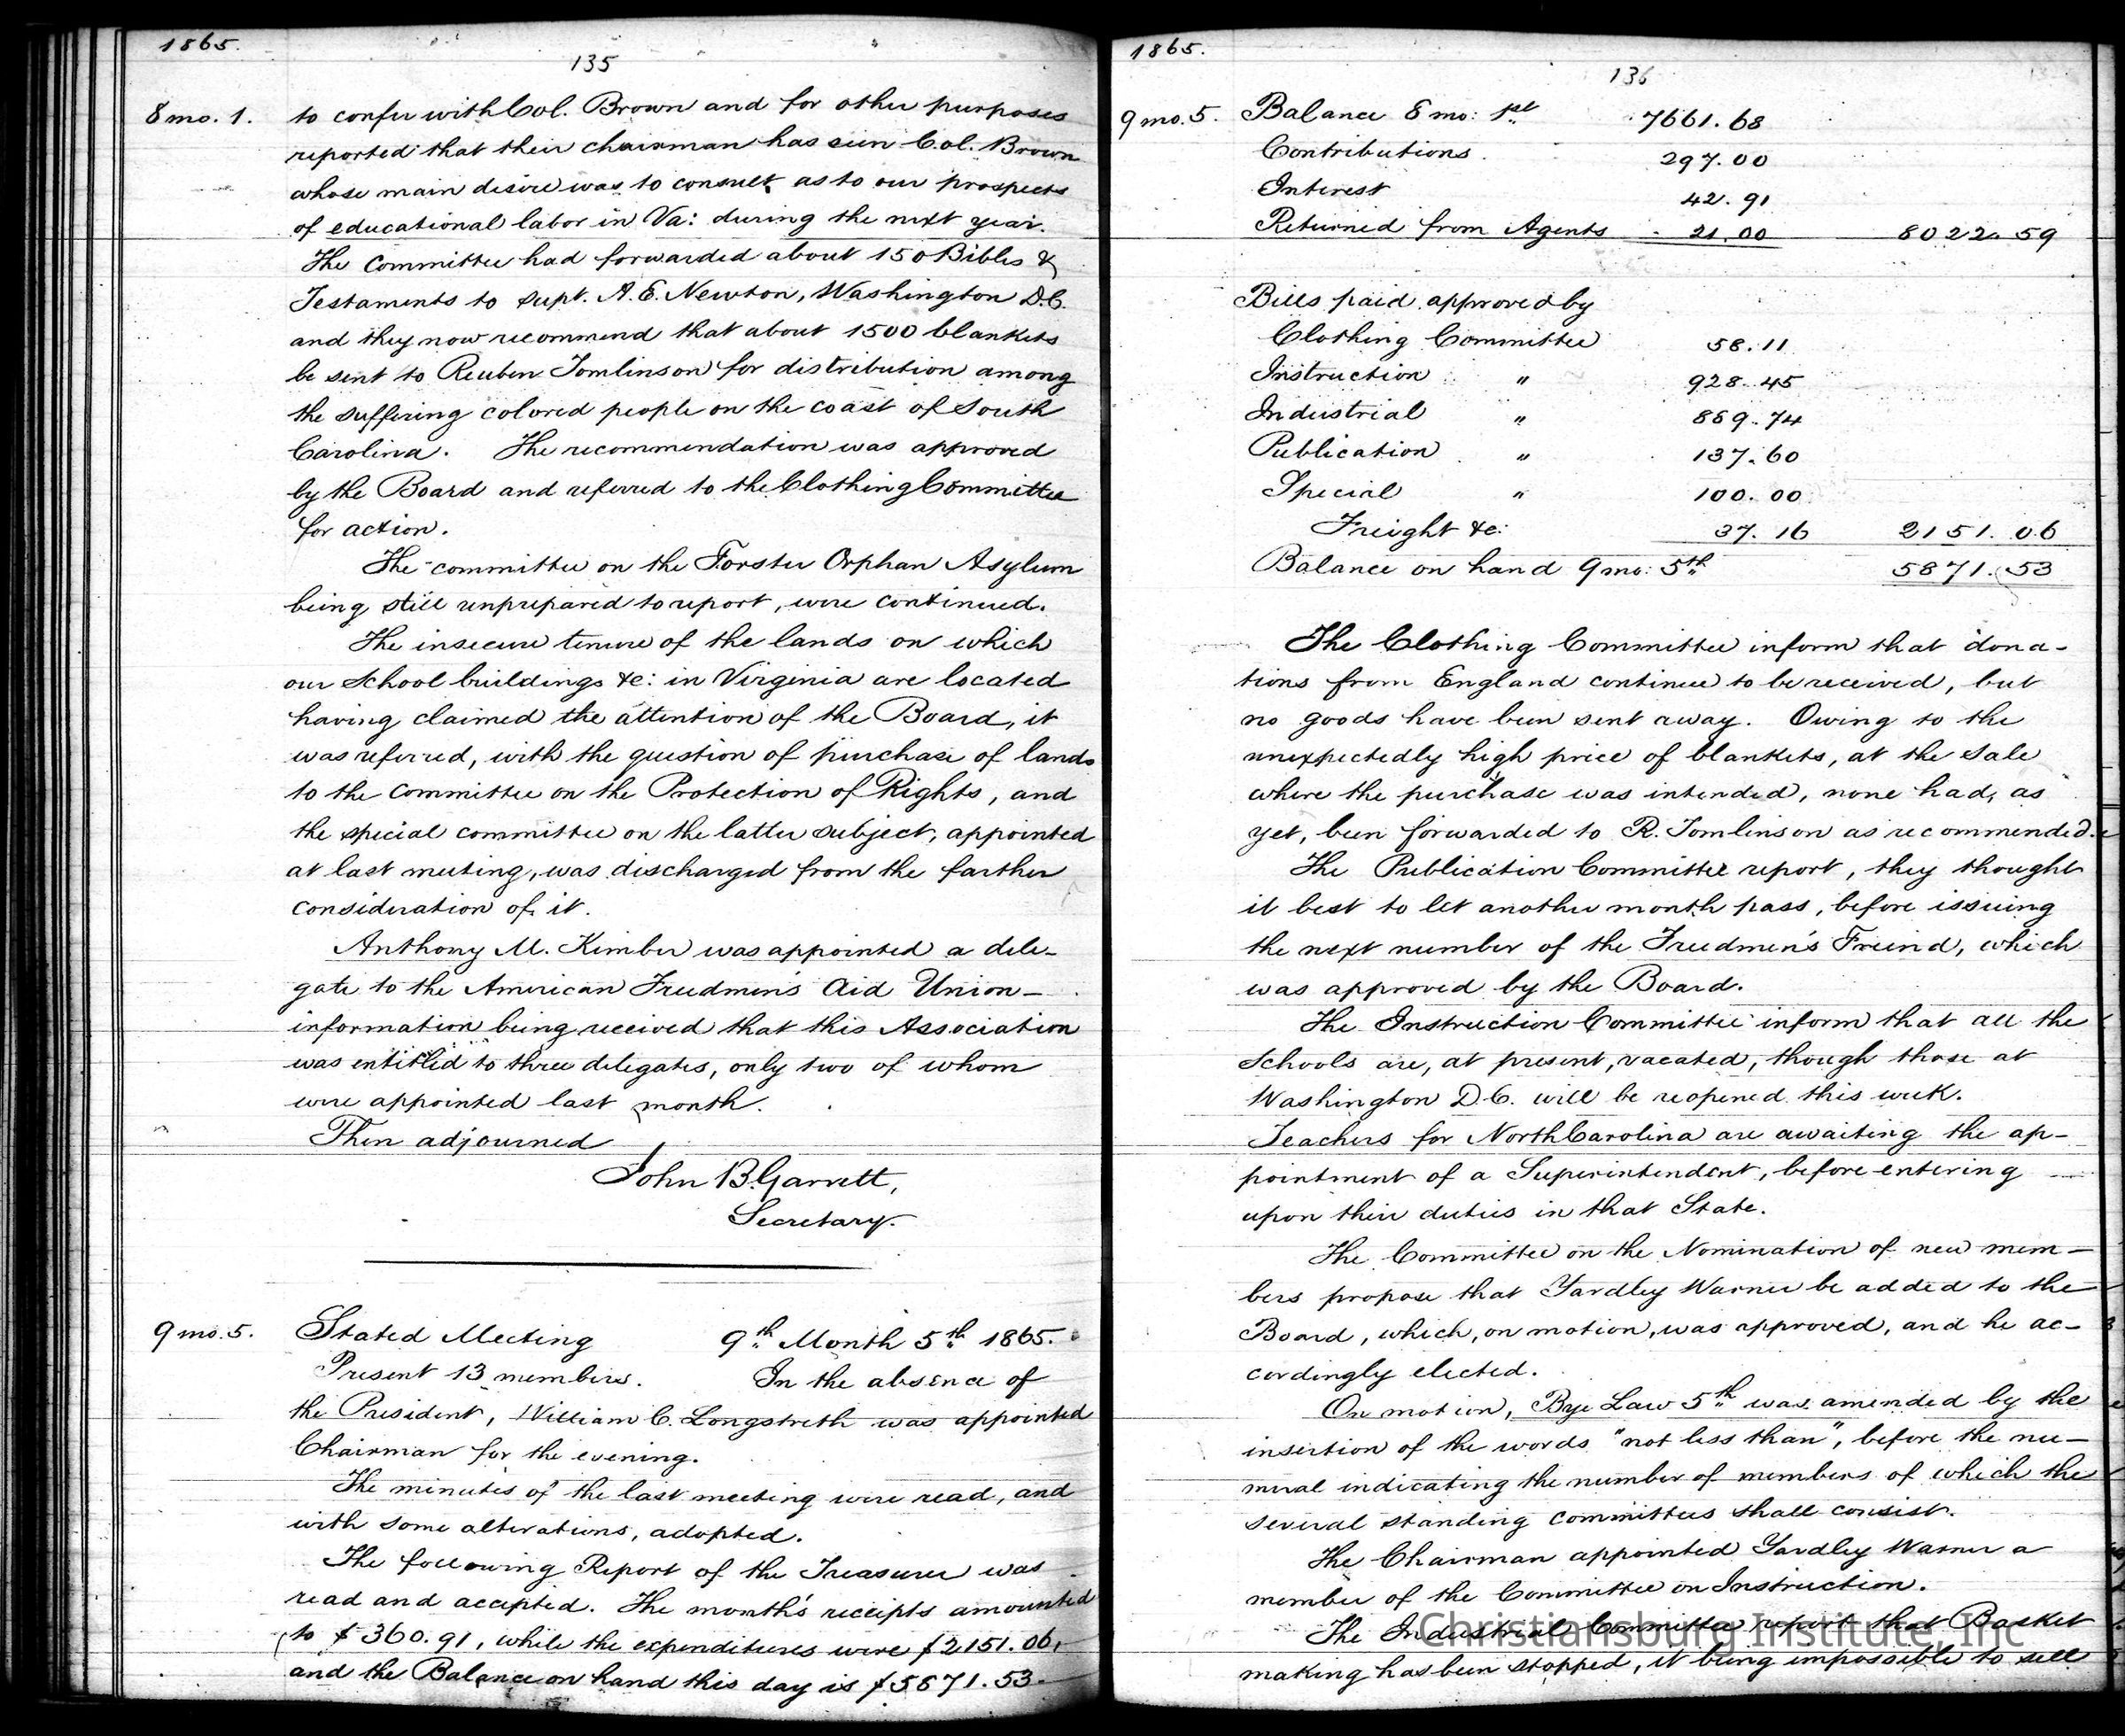 1865.
135
8 mo. 1. to confer with Col. Brown and for other purposes
reported that their chairman has seen Col. Brown
whose main desire was to consult as to our prospects
of educational labor in Va: during the next year.
The Committee had forwarded about 150 Bibles &
Testaments to Supt. A. E. Newton, Washington D.C.
and they now recommend that about 1500 blankets
be sent to Reuben Tomlinson for distribution among
the suffering colored people on the coast of South
Carolina. The recommendation was approved
by the Board and referred to the Clothing Committee
for action.
The committee on the Forster Orphan Asylum
being still unprepared to report, were continued.
The insecure tenure of the lands on which
our School buildings &c: in Virginia are located
having claimed the attention of the Board, it
was referred, with the question of purchase of lands
to the Committee on the Protection of Rights, and
the special committee on the latter subject, appointed
at last meeting, was discharged from the farther
consideration of it.
Anthony M. Kimber was appointed a dele-
gate to the American Freedmen's Aid Union-
information being received that this Association
was entitled to three delegates, only two of whom
were appointed last month.
Then adjourned
John B. Garrett,
Secretary.
9 mo. 5. Stated Meeting 9th Month 5th 1865.
Present 13 members. In the absence of
the President, William C. Longstreth was appointed
Chairman for the evening.
The minutes of the last meeting were read, and
with some alterations, adopted.
The following Report of the Treasurer was
read and accepted. The month's receipts amounted
to $360.91, while the expenditures were $2151.06,
and the Balance on hand this day is $5871.53.
1865.
136
9 mo. 5. Balance 8 mo: 1st 7661.68
Contributions 297.00
Interest 42.91
Returned from Agents 21.00 8022.59
Bills paid approved by
Clothing Committee 58.11
Instruction " 928.45
Industrial " 889.74
Publication " 137.60
Special " 100.00
Freight &c: 37.16 2151.06
Balance on hand 9 mo: 5th 5871.53
The Clothing Committee inform that dona-
tions from England continue to be received, but
no goods have been sent away. Owing to the
unexpectedly high price of blankets, at the Sale
where the purchase was intended, none had, as
yet, been forwarded to R. Tomlinson as recommended.
The Publication Committee report, they thought
it best to let another month pass, before issuing
the next number of the Freedmen's Freind, which
was approved by the Board.
The Instruction Committee inform that all the
Schools are, at present, vacated, though those at
Washington D.C. will be reopened this week.
Teachers for North Carolina are awaiting the ap-
pointment of a Superintendent, before entering
upon their duties in that State.
The Committee on the Nomination of new mem-
bers propose that Yardley Warner be added to the
Board, which, on motion, was approved, and he ac-
cordingly elected.
On motion, Bye Law 5th was amended by the
insertion of the words "not less than", before the nu-
meral indicating the number of members of which the
several standing committees shall consist.
The Chairman appointed Yardley Warner a
member of the Committee on Instruction.
The Industrial Committee report that Basket
making has been stopped, it being impossible to sell
Christiansburg Institute, Inc